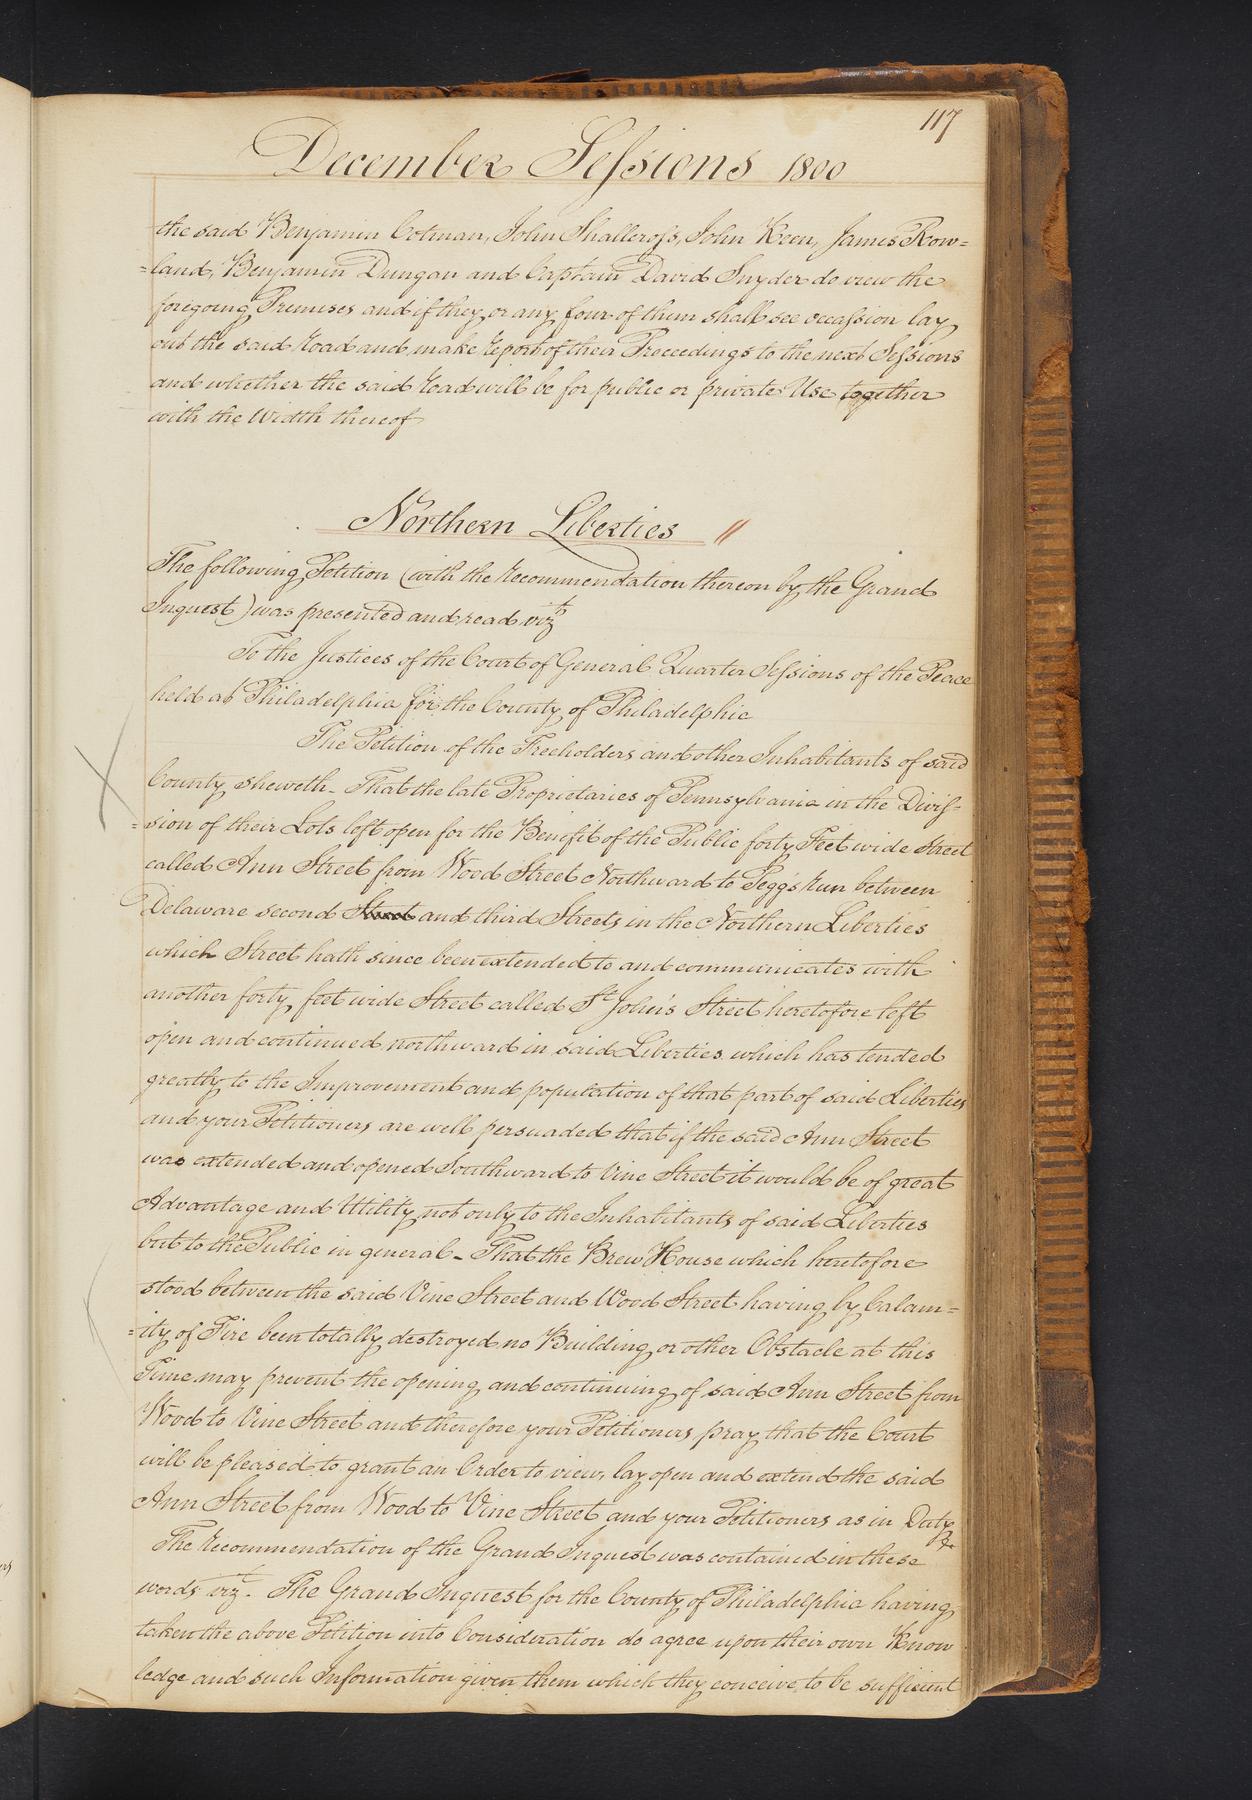 117
December Sessions 1800
the said Benjamin Cotman, John Shallcross, John Keen, James Row=
=land, Benjamin Dungan and Captain David Snyder do view the
foregoing Premises and if they or any four of them shall see occassion lay
out the said Road and make report of their Proceedings to the next Sessions
and whether the said road will be for public or private Use together
with the Width thereof
Northern Liberties "
The following Petition (with the recommendation thereon by the Grand
Inquest) was presented and read vizt
To the Justices of the Court of General Quarter Sessions of the Peace
held at Philadelphia for the County of Philadelphia
The Petition of the Freeholders and other Inhabitants of said
County sheweth - That the late Proprietaries of Pennsylvania in the Divis=
=sion of their Lots left open for the Benefit of the Public forty Feet wide Street
called Ann Street from Wood Street Northward to Pegg's run between
Delaware second Street and third Streets in the Northern Liberties
which Street hath since been extended to and communicates with
another forty feet wide Street called St. John's Street heretofore left
open and continued northward in said Liberties which has tended
greatly to the Improvement and population of that part of said Liberties
and your Petitioners are well persuaded that if the said Ann Street
was extended and opened Southward to Vine Street it would be of great
Advantage and Utility not only to the Inhabitants of said Liberties
but to the Public in general - That the Brew House which heretofore
stood between the said Vine Street and Wood Street having by Calam=
=ity of Fire been totally destroyed no Building or other Obstacle at this
Time may prevent the opening and continuing of said Ann Street from
Wood to Vine Street and therefore your Petitioners pray that the Court
will be pleased to grant an Order to view, lay open and extend the said
Ann Street from Wood to Vine Street and your Petitioners as in Duty
&c
The recommendation of the Grand Inquest was contained in these
words vizt. The Grand Inquest for the County of Philadelphia having
taken the above Petition into Consideration do agree upon their own Know
ledge and such Information given them which they conceive to be sufficient